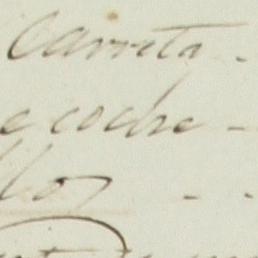 Carreta -
e coche -
llos - -